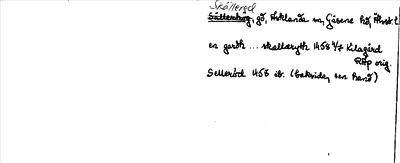 Skällered
Sätterhög, gd, Arklanda sn, Gäsene hd, Älvsb. l
en gardh ... skællaryth 1458 4/7 Kilagård
RAp orig.
Selleröd 1458 ib. (baksidan, sen hand)